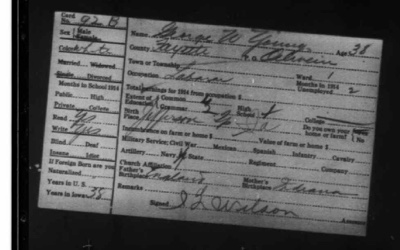 Card No. 92 B
Name George W Young Age 38
Sex Male Female
County Fayette P.O. Oelwein
Color White
Town or Township Ward 1
Married Widowed
Occupation Laborer Months in 1914 Unemployed 2
Single Divorced
Months in School 1914
Total earnings for 1914 from occupation $
Public High
Extent of Education Common Grammar High School College
Private College
Birth Place Jefferson Do you own your home or farm? No
Read Yes
Incumbrance on farm or home $ Value of farm or home $
Write Yes
Military Service: Civil War Mexican Spanish Infantry Cavalry
Blind Deaf
Artillery Navy State Regiment Company
Insane Idiot
Church Affiliation
If Foreign Born are you Naturalized
Father's Birthplace Mother's Birthplace Indiana
Years in U.S.
Remarks
Years in Iowa 38
Signed J L Wilson